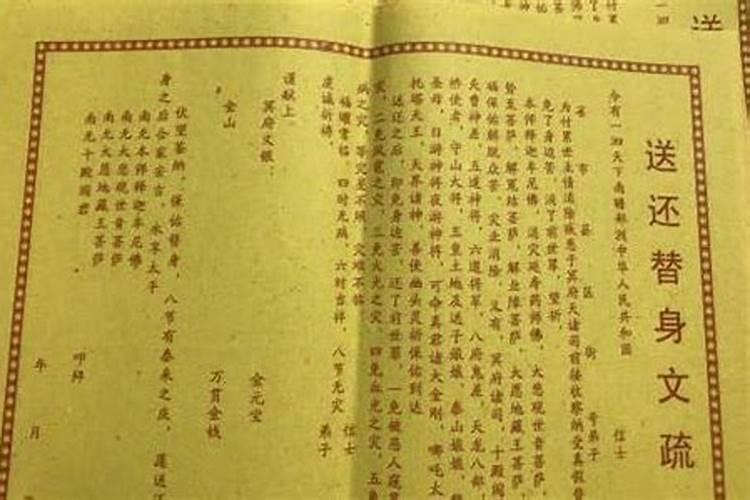 送还替身文疏
今有一泗天下南赡部洲中华人民共和国
信士
省 市 县 区 街 号弟子
为付累世主情消除
免了身边苦，消了前世罪，望祈
本师释迦牟尼佛，消灾延寿药师佛，大慈观世音菩萨
势至菩萨，解冤结菩萨，解业障菩萨，大愿地藏王菩萨，
福保佑解脱众苦，灾业消除，又有，冥府诸司，十殿阎
天曹神差，五道神将，六道将军，八府鬼差，天龙八部，
桥使者，守山大将，五皇土地及送子娘娘，泰山娘娘，
圣母，日游神将夜游神将，可命真君诸大金刚，哪吒太
托塔天王，天界诸神，善使幽头灵祈保佑到达
送还之后，即免身边苦，还了前世罪，一免被恶人
二免风 之灾，三免火光之灾，四免血光之灾，五
病之灾，等灾是不照，灾难不临
福曜常临 四时无病，六时吉祥，八节无灾 信士
虔诚祈祷， 弟子
谨献上
冥府文银： 金元宝
金山 万贯金钱
伏望鉴纳，保佑替身，八节有泰来之庆，
身之后合家安吉，永享太平
南无本师释迦牟尼佛
南无大慈观世音菩萨
南无大愿地藏王菩萨
南无十殿阎君
叩拜
年 月
送